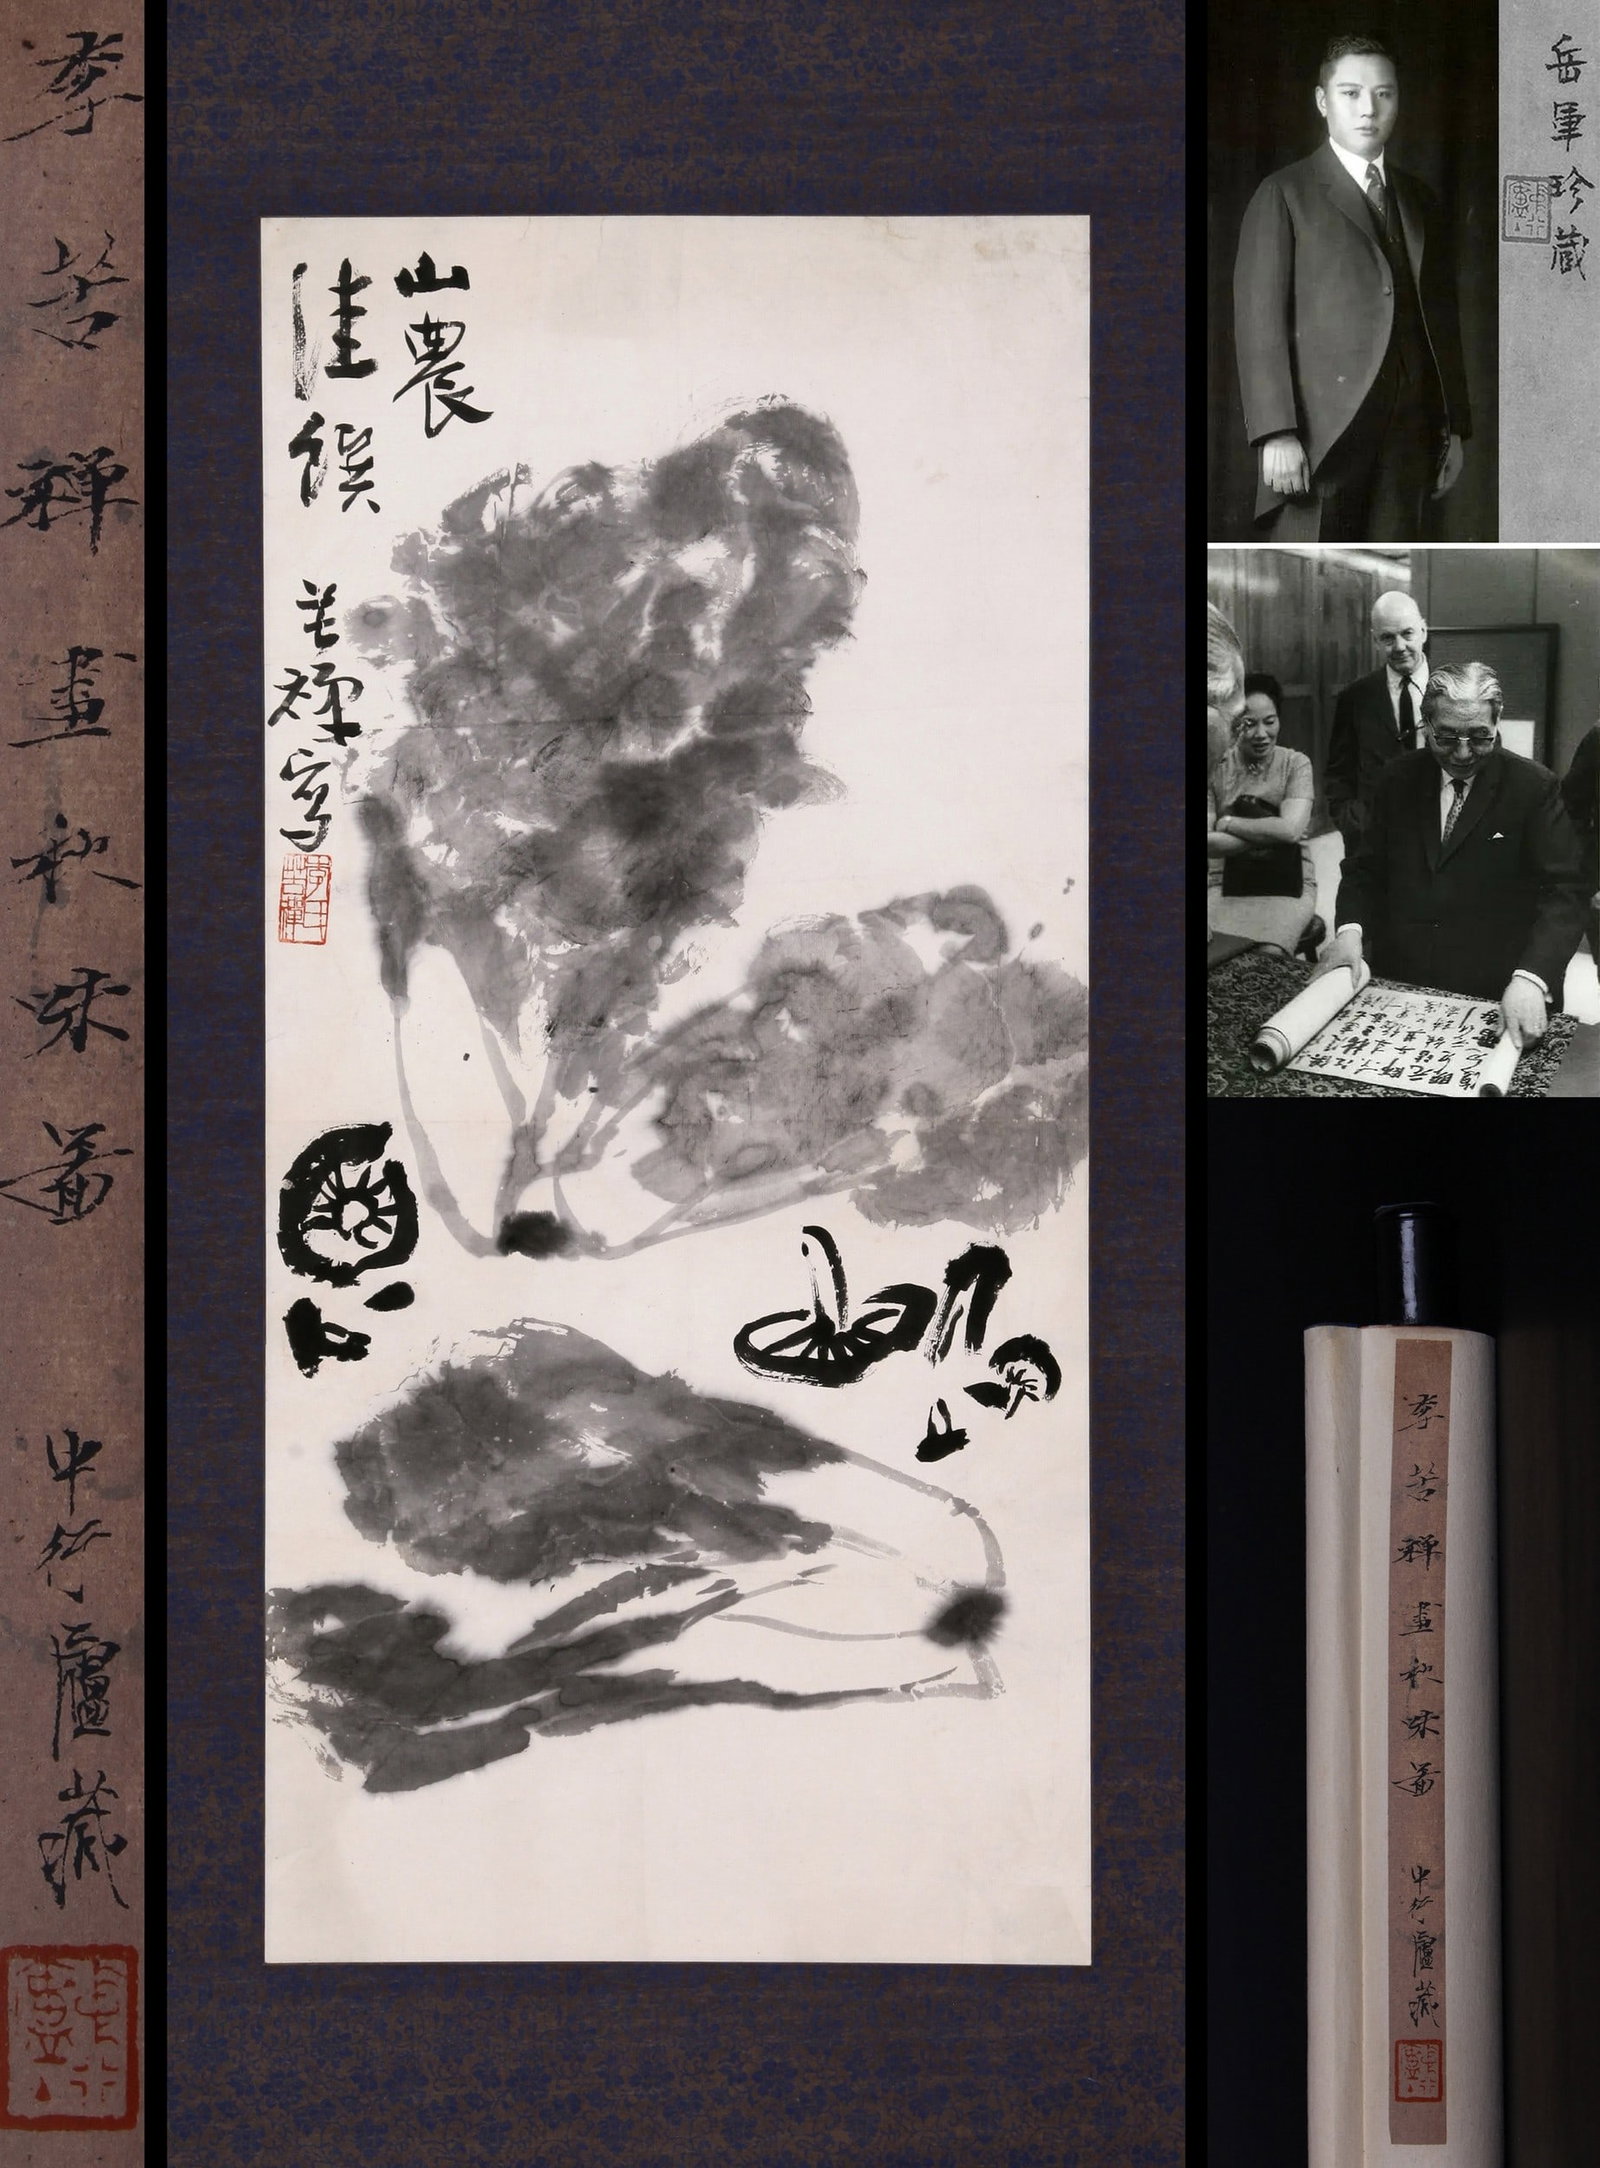 李苦禪畫秋味圖 中行廬藏
山農
佳饌 苦禪寫
李氏苦禪
岳軍珍藏
李苦禪畫秋味圖 中行廬藏